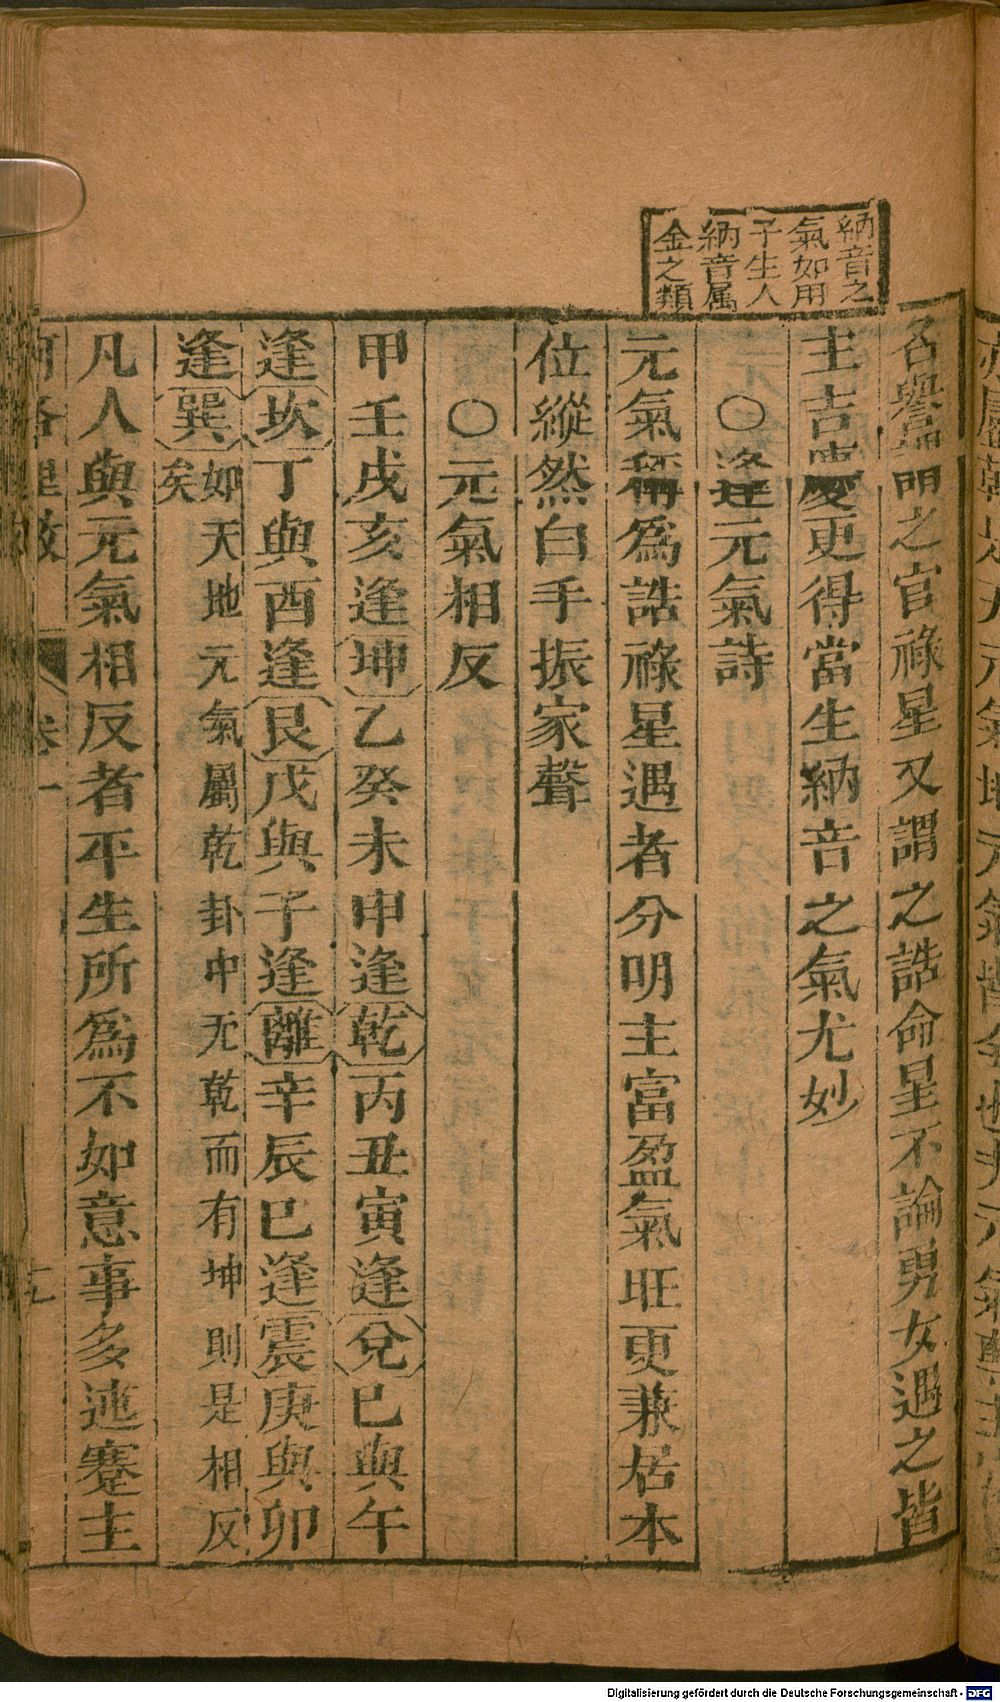 納音之
氣如用
子生人
納音属
金之類
名譽謂之官祿星又謂之誥命星不論男女遇之皆
主吉慶更得當生納音之氣尤妙
○逢元氣詩
元氣稱爲誥祿星遇者分明主富盈氣旺更兼居本
位縱然白手振家聲
○元氣相反
甲壬戌亥逢坤乙癸未申逢乾丙丑寅逢兌巳與午
逢坎丁與酉逢艮戊與子逢離辛辰巳逢震庚與卯
逢巽如天地元氣屬乾卦中无乾而有坤則是相反
矣
凡人與元氣相反者平生所爲不如意事多迍蹇主
卷一
Digitalisierung gefördert durch die Deutsche Forschungsgemeinschaft - DFG